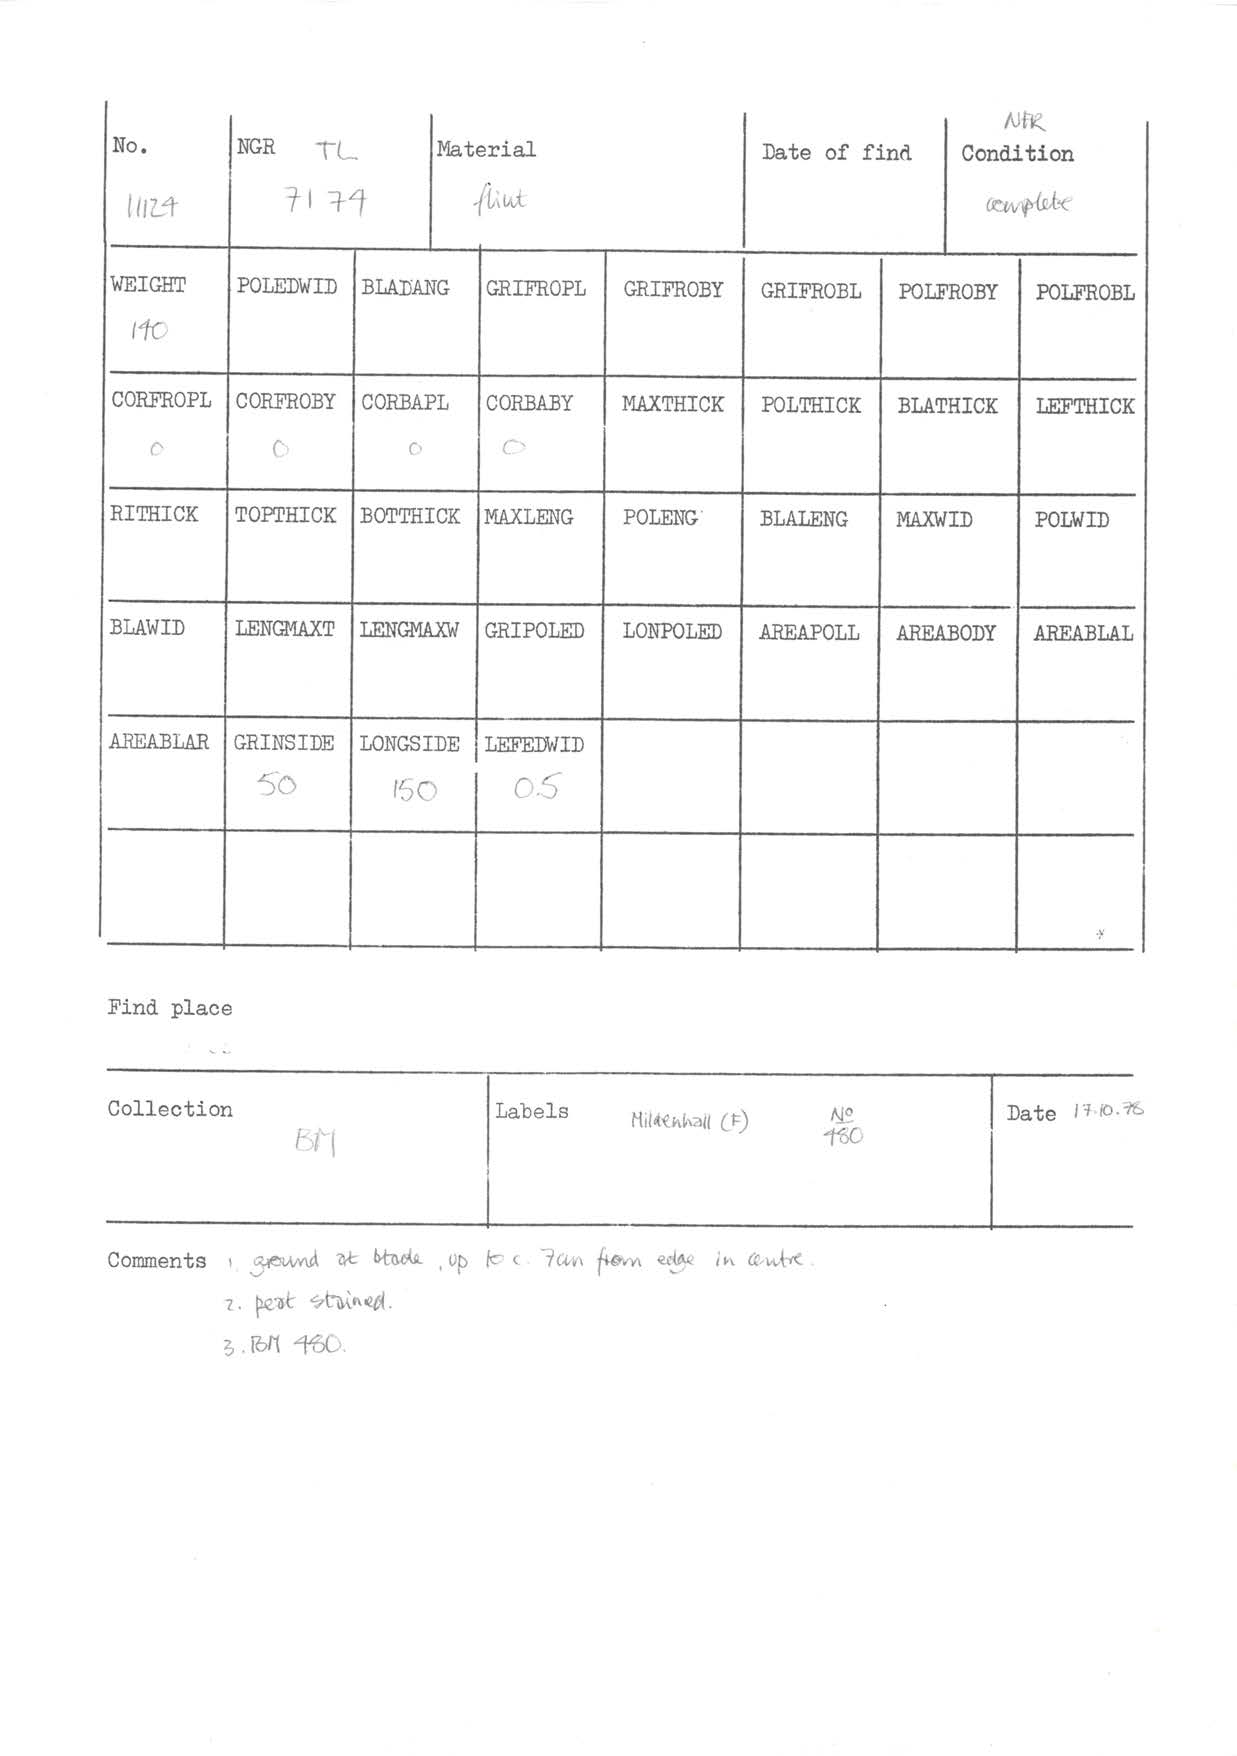 NFR
No. NGR TL Material Date of find Condition
11124 71 74 flint complete
WEIGHT POLEDWID BLADANG GRIFROPL GRIFROBY GRIFROBL POLFROBY POLFROBL
140
CORFROPL CORFROBY CORBAPL CORBABY MAXTHICK POLTHICK BLATHICK LEFTHICK
0 0 0 0
RITHICK TOPTHICK BOTTHICK MAXLENG POLENG BLALENG MAXWID POLWID
BLAWID LENGMAXT LENGMAXW GRIPOLED LONPOLED AREAPOLL AREABODY AREABLAL
AREABLAR GRINSIDE LONGSIDE LEFEDWID
50 150 0.5
Find place
Collection Labels Mildenhall (F) No Date 17.10.78
BM 480
Comments 1. ground at blade, up to c. 7cm from edge in centre.
2. peat stained.
3. BM 480.